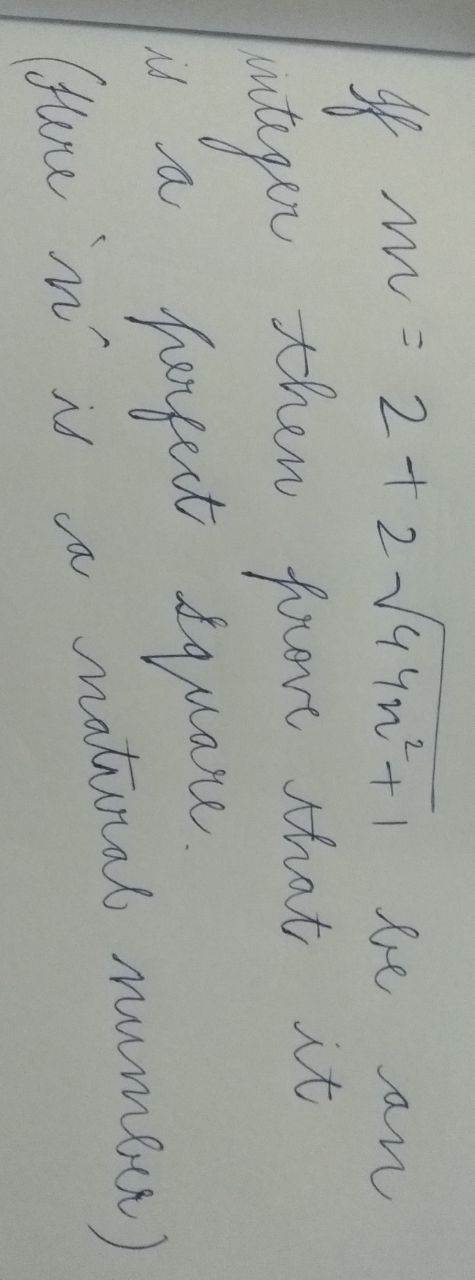 If m = 2 + 2√44n² + 1 be an
integer then prove that it
is a perfect square.
(Here 'n' is a natural number)